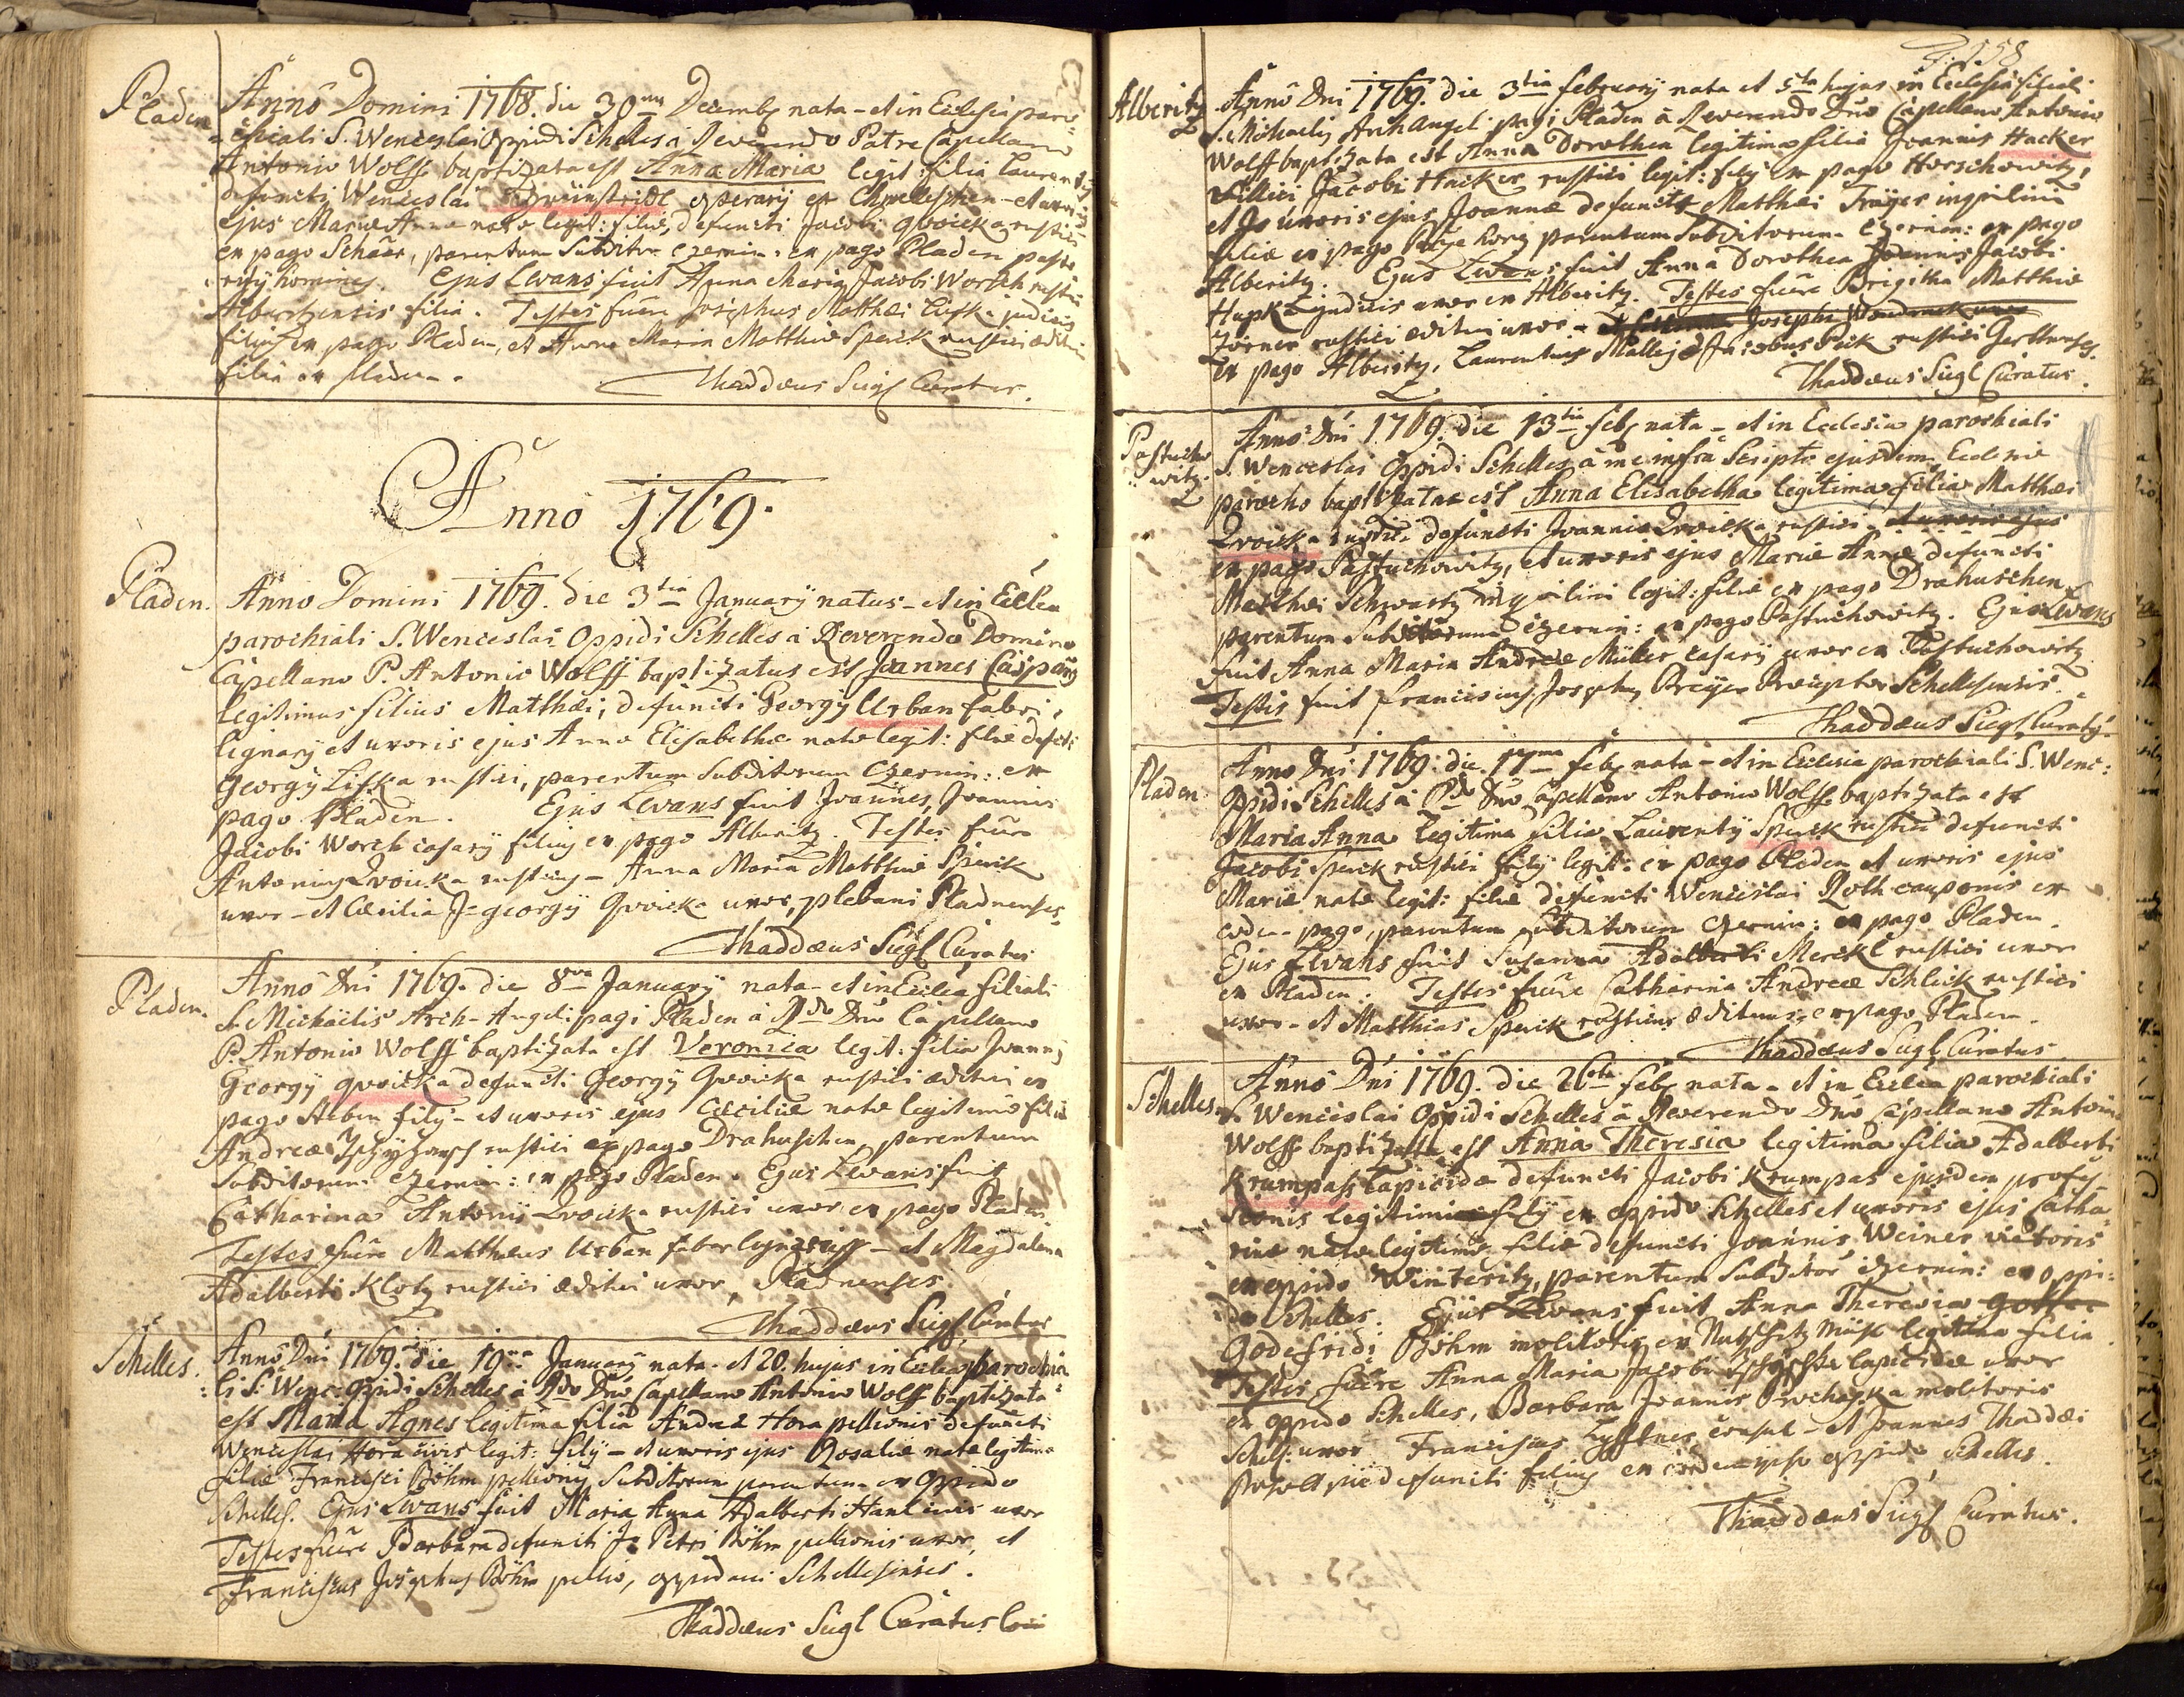 Pladen
Anno Domini 1768. die 30 Decemb nata - et in Ecclesia paro=
=chiali S. Wenceslai Oppidi Schelles à Reverendo Patre Capellano
Antonio Wolff baptizata est Anna Maria legit: filia
defuncti Wenceslai operarij ex
ejus Mariæ Annæ natæ legit: filiæ, defuncti Jacobi Qvoicka rustici
ex pago parentum Czernin: ex pago Pladen
Ejus Levans fuit Anna Maria Jacobi Worch
filia. Testes fuere Josephus Matthæi Lisska judicis
filius ex pago Pladen, et Anna Maria Matthiæ Sperck rustici
filia ex Pladen.
Thaddæus Siegl Curatus.
Anno 1769.
Pladen.
Anno Domini 1769. die 3tia January natus - et in Ecclea
parochiali S. Wenceslai Oppidi Schelles à Reverendo Domino
Capellano P. Antonio Wolff baptizatus est Joannes Casparg
legitimus filius Matthæi, defuncti Georgÿ Urban fabri
lignarÿ et uxoris ejus Annæ Elisabethæ natæ legit: filæ
Georgÿ Lisska rustici, parentum Subditorum Czernin: ex
pago Pladen. Ejus Levans fuit Joannes, Joannis
Jacobi Worch casarÿ filius ex pago Alberitz. Testes fuere
Antonius Qvoicka rusticus - Anna Maria Matthiæ Sperck
uxor - et Cæcilia Georgÿ Qvoicka uxor, plebani Pladnenses
Thaddæus Siegl Curatus
Pladen.
Anno Dni 1769. die 8va January nata - et in Ecclea filiali
S. Michaëlis Arch-Angeli pagi Pladen à Rdo Dno Capellano
P. Antonio Wolff baptizata est Veronica legit: filia Joannis
Georgÿ Qvoicka defuncti Georgÿ Qvoicka rustici æditui ex
pago filÿ - et uxoris ejus Cæciliæ natæ legitimæ filiæ
Andreæ rustici ex pago Drahuschen, parentum
Subditorum Czernin: ex pago Pladen. Ejus Levans fuit
Catharina Antonÿ Qvoicka rustici uxor ex pago Pladen.
Testes fuere Matthæus Urban faber lignarius - et Magdalena
Adalberti Klotz rustici æditui uxor, Pladnenses.
Thaddæus Siegl Curatus
Schelles.
Anno Dni 1769. die 19na January nata - et 20. hujus in Ecclea parochia
=li S: Wenc: Oppidi Schelles à Rdo Dno Capellano Antonio Wolff baptizata
est Maria Agnes legitima filia Andreæ Hora pellionis defuncti
Wenceslai Hora civis legit: filÿ - et uxoris ejus Rosaliæ natæ legitimæ
filiæ Francisci Böhm pellionis Subditorum parentum ex Oppido
Schelles. Ejus Levans fuit Maria Anna Adalberti uxor
Testes fuere Barbara defuncti Petri Böhm pellionis uxor, et
Franciscus Josephus Böhm pellio, oppidani Schellesenses.
Thaddæus Siegl Curatus
558
Alberitz
Anno Dni 1769. die 3tia february nata et 5ta hujus in Ecclesia filiali
S. Michaelis Archangeli pagi Pladen à Reverendo Dno Capellano Antonio
Wolff baptizata est Anna Dorothea legitima filia Joannis Hacker
Jacobi Hacker rustici legit: filÿ ex pago Horschowitz,
et uxoris ejus Joannæ defuncti Matthæi Träger inquilini
filiæ ex pago parentum Subditorum Czernin: ex pago
Alberitz. Ejus Levans fuit Anna Dorothea Joannis Jacobi
judicis uxor ex Alberitz. Testes fuere Brigitha Matthiæ
rustici æditui uxor -
ex pago Alberitz, Laurentius et Jacobus rustici
Thaddæus Siegl Curatus.
Pastucho
witz.
Anno Dni 1769. die 13tia feb nata - et in Ecclesia parochiali
S. Wenceslai Oppidi Schelles à me infra Scripto ejusdem Ecclesiæ
parocho baptizata est Anna Elisabetha legitima filia Matthæi
Qvoicka defuncti Joannis Qvoicka rustici et uxoris ejus
ex pago Pastuchowitz, et uxoris ejus Mariæ Annæ defuncti
Matthæi Schwartz inquilini legit: filiæ ex pago Drahuschen
parentum Subditorum Czernin: ex pago Pastuchowitz. Ejus Levans
fuit Anna Maria Andreæ Müller casarÿ uxor ex Pastuchowitz
Testis fuit Franciscus Josephus Preceptor Schellesensis.
Thaddæus Siegl Curatus
Pladen
Anno Dni 1769. die 17ma feb nata - et in Ecclesia parochiali S. Wenc:
Oppidi Schelles à Rdo Dno Capellano Antonio Wolff baptizata est
Maria Anna legitima filia Laurentÿ Sperck rustici defuncti
Jacobi Sperck rustici filÿ legit: ex pago Pladen et uxoris ejus
Mariæ natæ legit: filiæ defuncti Wenceslai Roth cauponis ex
eodem pago, parentum Subditorum Czernin: ex pago Pladen.
Ejus Levans fuit Susanna Adalberti Merckl rustici uxor
ex Pladen. Testes fuere Catharina Andreæ Schlick rustici
uxor - et Matthias Sperck rusticus ædituus, ex pago Pladen.
Thaddæus Siegl Curatus
Schelles.
Anno Dni 1769. die 26ta feb nata - et in Ecclea parochiali
S. Wenceslai Oppidi Schelles à Reverendo Dno Capellano Antonio
Wolff baptizata est Anna Theresia legitima filia Adalberti
Krumpass Lapicidæ defuncti Jacobi Krumpas ejusdem profes=
sionis legitimi filÿ ex oppido Schelles et uxoris ejus Catha=
rinæ natæ legitimæ filiæ defuncti Joannis Weiner vietoris
ex oppido Winteritz, parentum Subditor Czernin: ex oppi=
do Schelles. Ejus Levans fuit Anna Theresia
Godefridi Böhm molitoris ex legitima filia
Testes fuere Anna Maria Jacobi lapicidæ uxor
ex oppido Schelles, Barbara Joannis Prochaska molitoris
Schell: uxor Franciscus consul - et Joannes Thaddæi
pie defuncti filius ex eodem oppido Schelles.
Thaddæus Siegl Curatus.